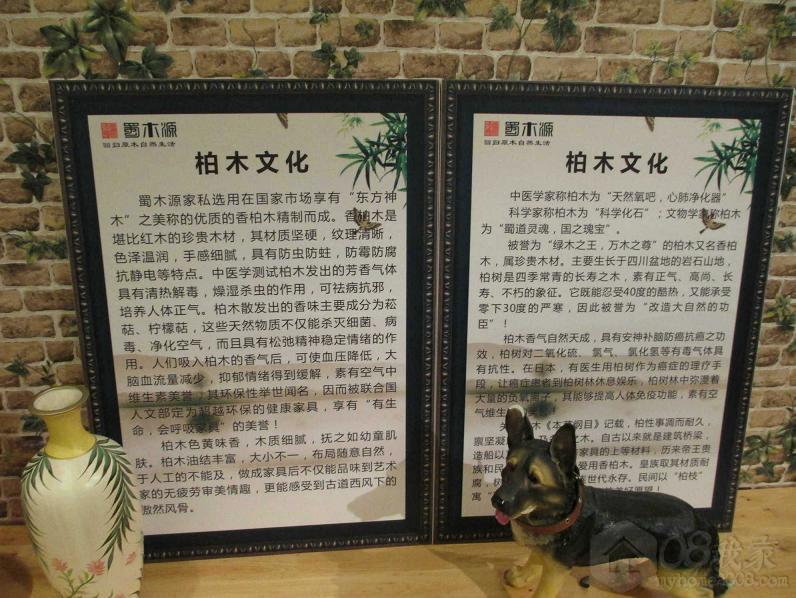 蜀木源
蜀归原木自然生活
柏木文化
蜀木源家私选用在国家市场享有“东方神
木”之美称的优质的香柏木精制而成。香柏木是
堪比红木的珍贵木材，其材质坚硬，纹理清晰，
色泽温润，手感细腻，具有防虫防蛀，防霉防腐
抗静电等特点。中医学测试柏木发出的芳香气体
具有清热解毒，燥湿杀虫的作用，可祛病抗邪，
培养人体正气。柏木散发出的香味主要成分为菘
萜、柠檬萜，这些天然物质不仅能杀灭细菌、病
毒、净化空气，而且具有松弛精神稳定情绪的作
用。人们吸入柏木的香气后，可使血压降低，大
脑血流量减少，抑郁情绪得到缓解，素有空气中
维生素美誉，其环保性举世闻名，因而被联合国
人文部定为超越环保的健康家具，享有“有生
命，会呼吸家具”的美誉！
柏木色黄味香，木质细腻，抚之如幼童肌
肤。柏木油结丰富，大小不一，布局随意自然，
于人工的不能及，做成家具后不仅能品味到艺术
家的无疲劳审美情趣，更能感受到古道西风下的
傲然风骨。
蜀木源
蜀归原木自然生活
柏木文化
中医学家称柏木为“天然氧吧，心肺净化器”
科学家称柏木为“科学化石”；文物学家称柏木
为“蜀道灵魂，国之瑰宝”。
被誉为“绿木之王，万木之尊”的柏木又名香柏
木，属珍贵木材。主要生长于四川盆地的岩石山地，
柏树是四季常青的长寿之木，素有正气、高尚、长
寿、不朽的象征。它既能忍受40度的酷热，又能承受
零下30度的严寒，因此被誉为“改造大自然的功
臣”！
柏木香气自然天成，具有安神补脑防癌抗癌之功
效，柏树对二氧化硫、氯气、氟化氢等有毒气体具
有抗性。在日本，有医生用柏树作为癌症的理疗手
段，让癌症患者到柏树林休息娱乐，柏树林中弥漫着
大量的负氧离子，其能够提高人体免疫功能，素有空
气维生
木《本草纲目》记载，柏性事凋而耐久，
禀坚凝 之木。自古以来就是建筑桥梁，
造船以 家具的上等材料，历来帝王贵
族和民 爱用香柏木。皇族取其材质耐
腐，树 世代永存。民间以“柏枝”
寓“ 美好愿望！
08我家
myhome2008.com